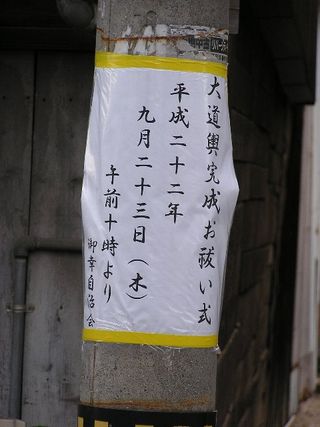 大道輿完成お祓い式
平成二十二年
九月二十三日(木)
午前十時より
御幸自治会